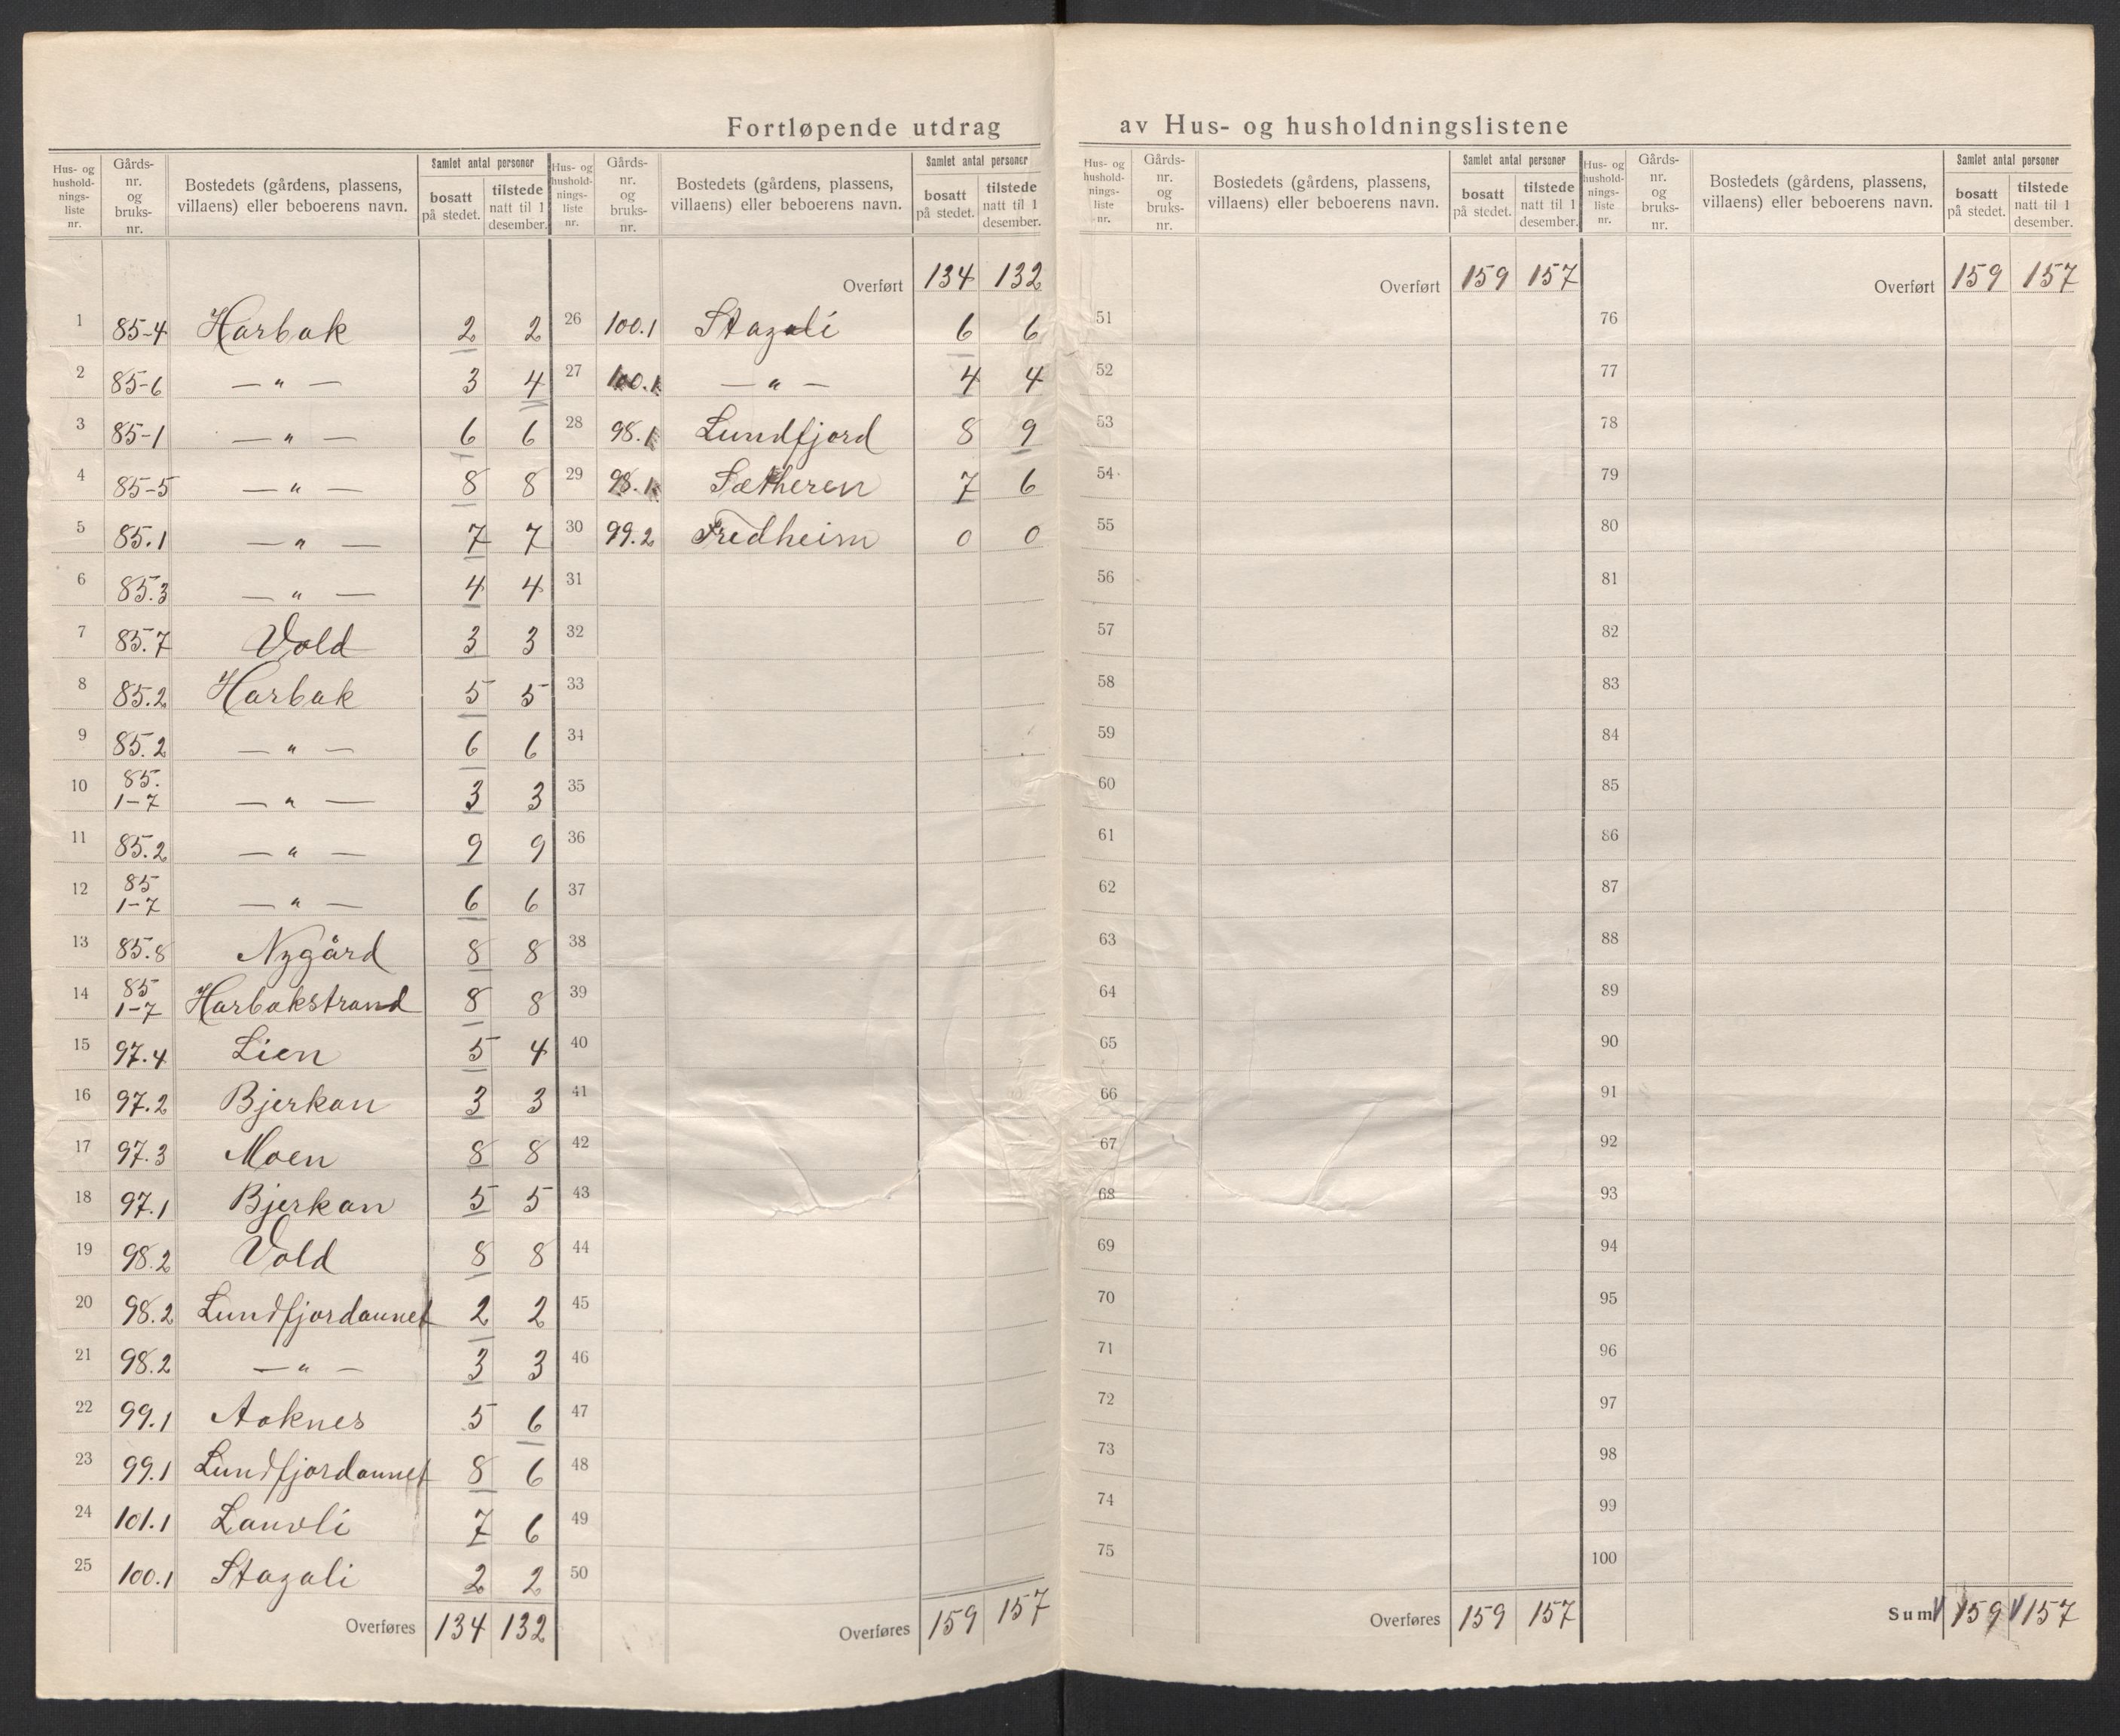 Fortløpende utdrag av Hus- og husholdningslistene
Hus- og hushold-nings-liste nr. | Gårds-nr. og bruks-nr. | Bostedets (gårdens, plassens, villaens) eller beboerens navn. | Samlet antal personer | bosatt på stedet. | tilstede natt til 1 desember.
1 85-4 Harbak 2 2
2 85-6 — " — 3 4
3 85-1 — " — 6 6
4 85-5 — " — 8 8
5 85.1 — " — 7 7
6 85.3 — " — 4 4
7 85.7 Vold 3 3
8 85.2 Harbak 5 5
9 85.2 — " — 6 6
10 85. 1-7 — " — 3 3
11 85.2 — " — 9 9
12 85 1-7 — " — 6 6
13 85.8 Nygård 8 8
14 85 1-7 Harbakstrand 8 8
15 97.4 Lien 5 4
16 97.2 Bjerkan 3 3
17 97.3 Moen 8 8
18 97.1 Bjerkan 5 5
19 98.2 Vold 8 8
20 98.2 Lundfjordaunet 2 2
21 98.2 — " — 3 3
22 99.1 Aoknes 5 6
23 99.1 Lundfjordaunet 8 6
24 101.1 Lauvli 7 6
25 100.1 Stagali 2 2
Overføres 134 132
Hus- og hushold-nings-liste nr. | Gårds-nr. og bruks-nr. | Bostedets (gårdens, plassens, villaens) eller beboerens navn. | Samlet antal personer | bosatt på stedet. | tilstede natt til 1 desember.
Overført 134 132
26 100.1 Stagali 6 6
27 100.1 — " — 4 4
28 98.1 Lundfjord 8 9
29 98.1 Sætheren 7 6
30 99.2 Fredheim 0 0
31
32
33
34
35
36
37
38
39
40
41
42
43
44
45
46
47
48
49
50
Overføres 159 157
Hus- og hushold-nings-liste nr. | Gårds-nr. og bruks-nr. | Bostedets (gårdens, plassens, villaens) eller beboerens navn. | Samlet antal personer | bosatt på stedet. | tilstede natt til 1 desember.
Overført 159 157
51
52
53
54
55
56
57
58
59
60
61
62
63
64
65
66
67
68
69
70
71
72
73
74
75
Overføres 159 157
Hus- og hushold-nings-liste nr. | Gårds-nr. og bruks-nr. | Bostedets (gårdens, plassens, villaens) eller beboerens navn. | Samlet antal personer | bosatt på stedet. | tilstede natt til 1 desember.
Overført 159 157
76
77
78
79
80
81
82
83
84
85
86
87
88
89
90
91
92
93
94
95
96
97
98
99
100
Sum 159 157